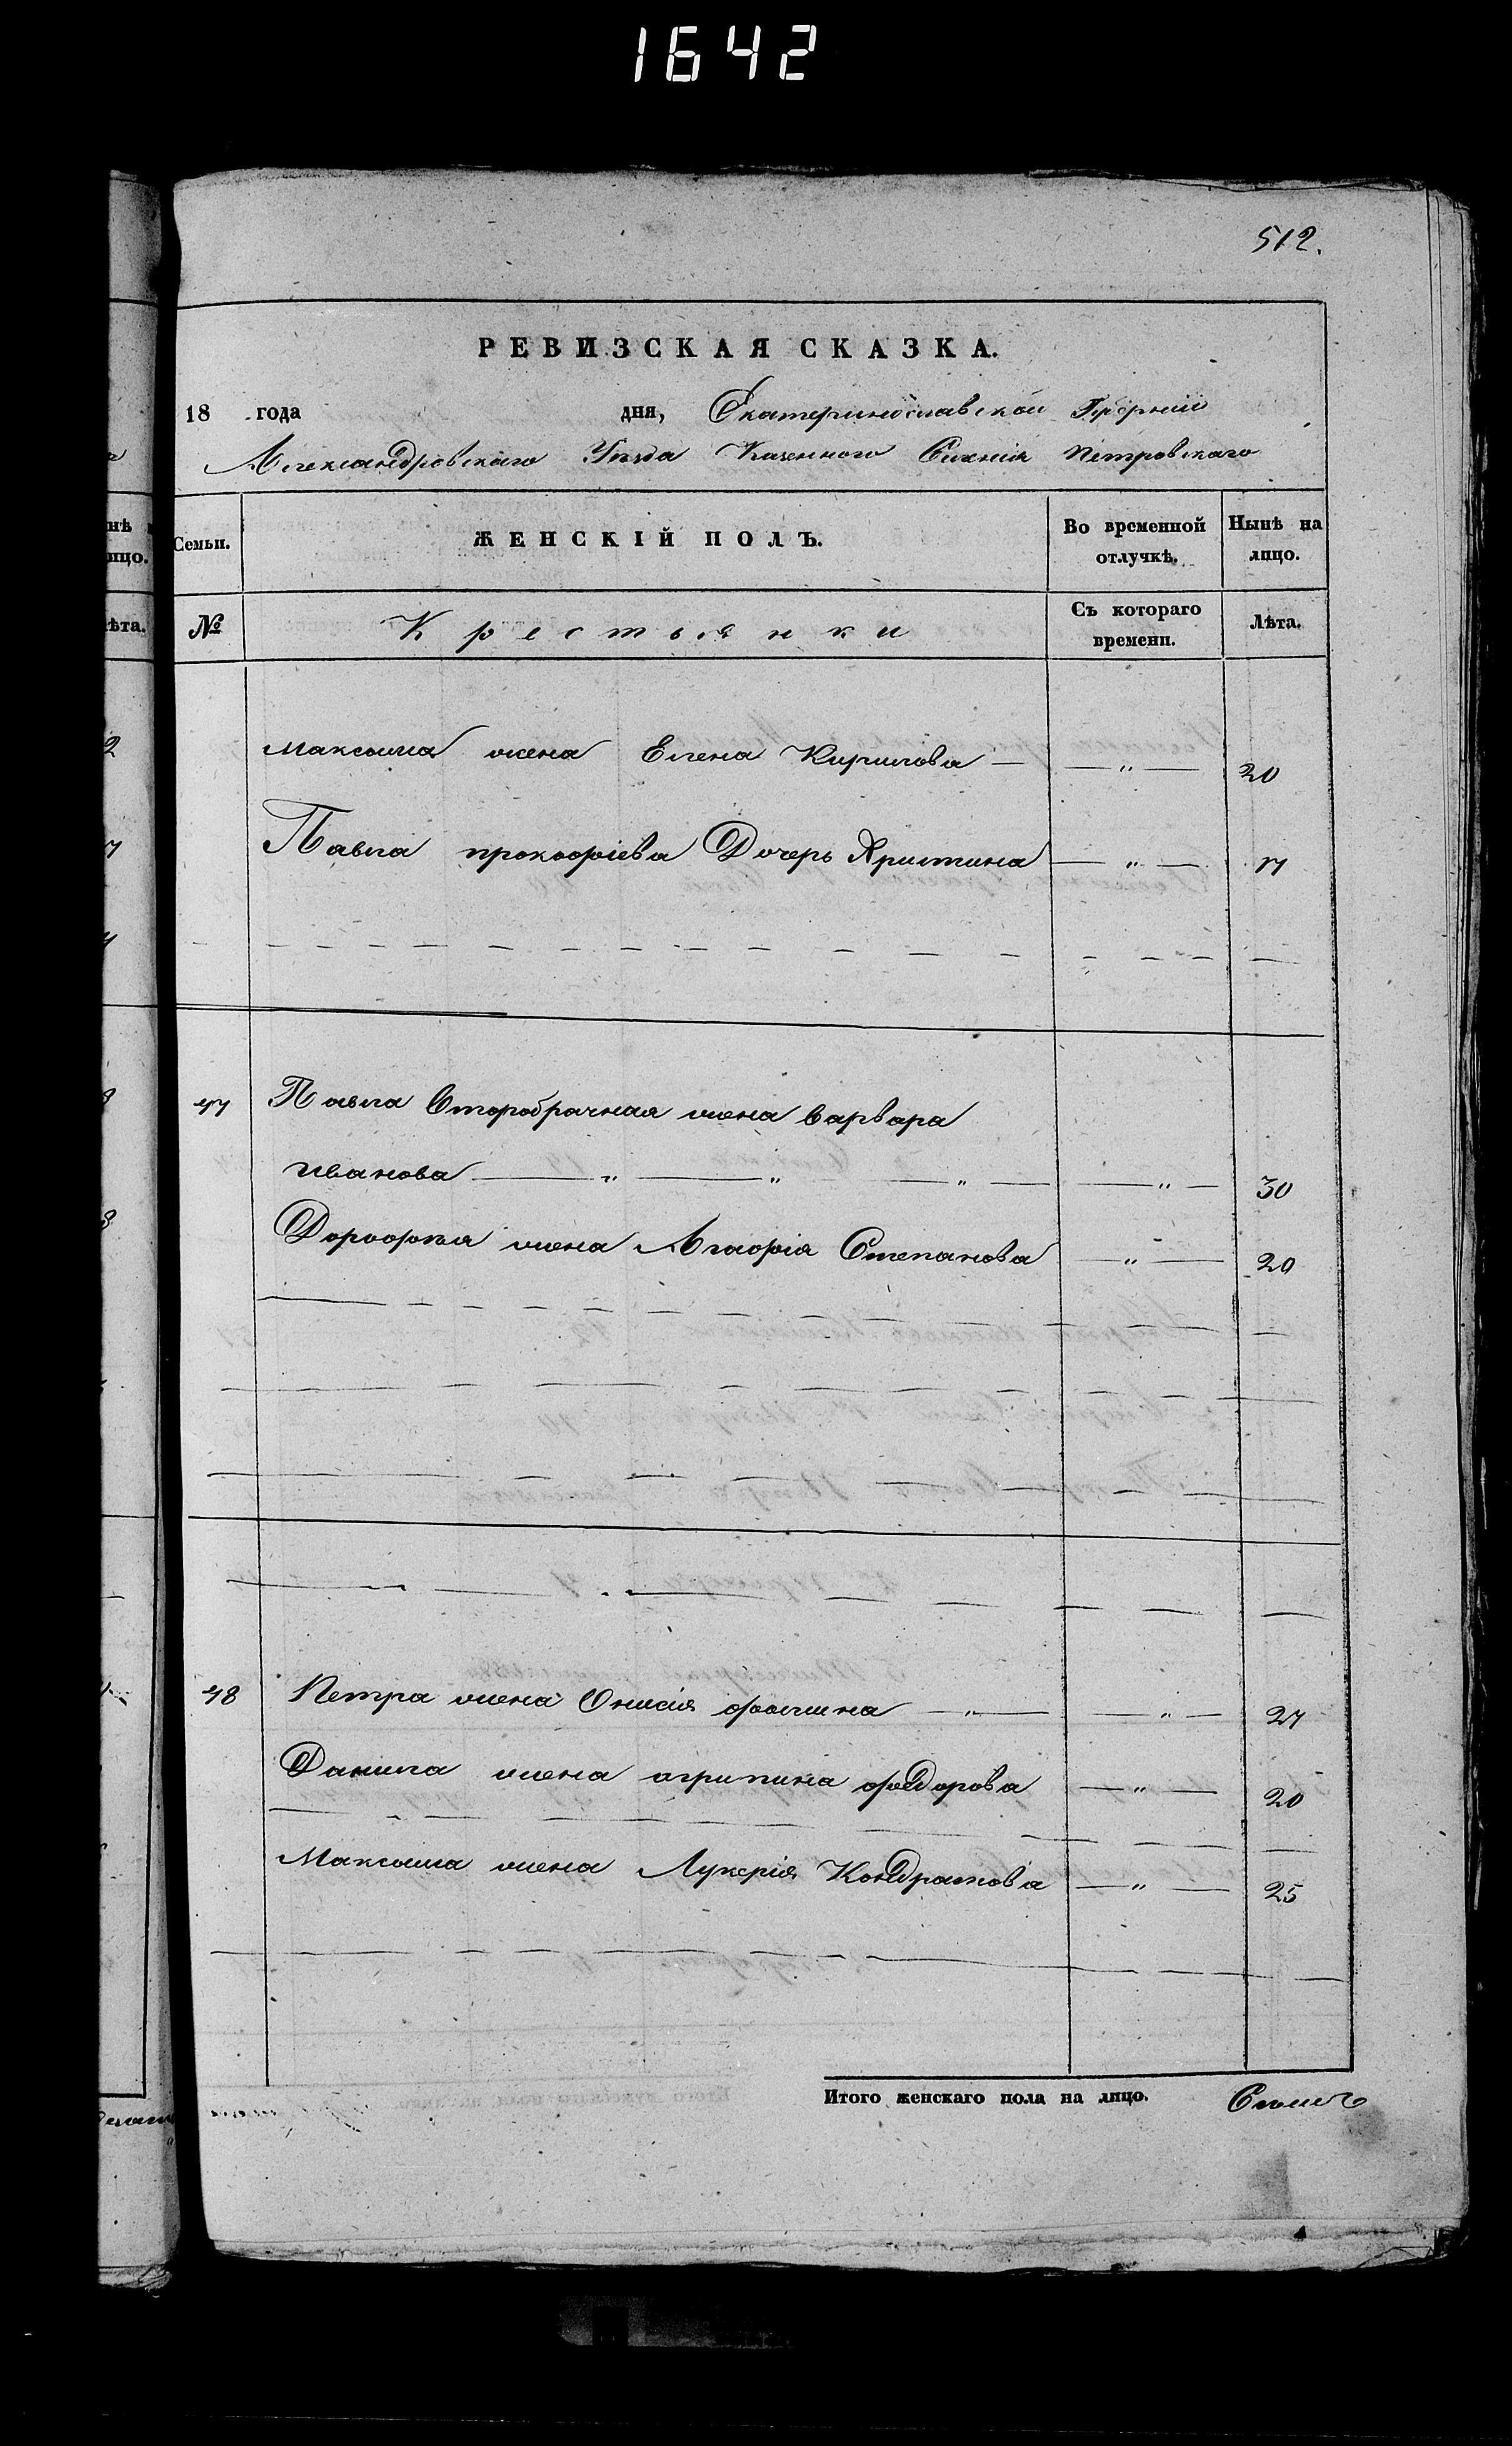 1642
512.
РЕВИЗСКАЯ СКАЗКА.
18 года дня, Екатеринославской Губерніи
Александровскаго Уѣзда Казенного Селенія Петровскаго
нѣ
Семьи. ЖЕНСКІЙ ПОЛЪ. Во временной отлучкѣ. Нынѣ на лицо.
ицо.
ѣта. № Крестьянки Съ котораго времени. Лѣта.
Максима жена Елена Кирилова — — „ — 20
Павла прокофіева Дочерь Христина — „ — 7
47 Павла Второбрачная жена Варвара
иванова — „ — „ — „ — — „ — 30
Дорофея жена Агафія Степанова — „ — 20
48 Петра жена Онисія фомина — „ — — „ — 27
Данила жена агрипина федорова — „ — 20
Максима жена Лукерія Кондратова — „ — 25
Итого женскаго пола на лицо. Семь